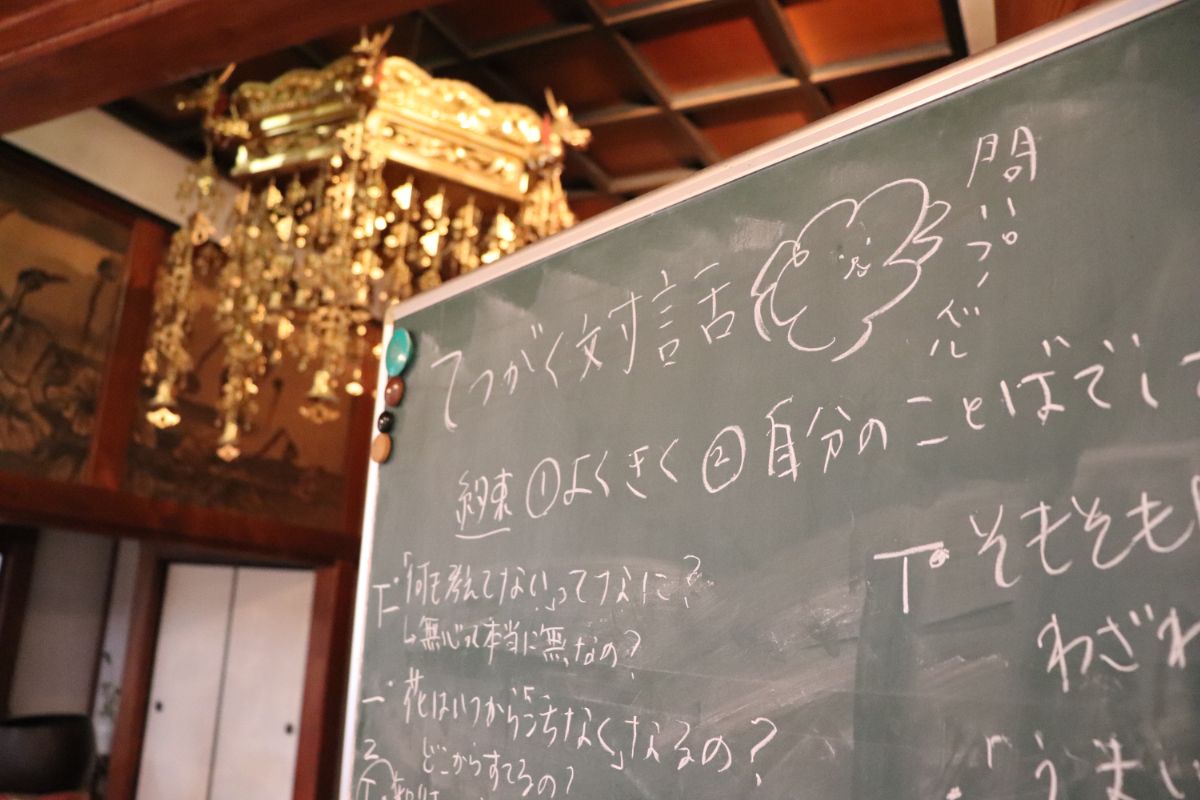 問いっぷく
てつがく対話
約束 ①よくきく ②自分のことばでして
T・「何も考えてない」ってなに?
↳無心って本当に無なの?
一・花はいつからうちなくなるの?
どこからすてるの?
T・そもそも
わざわ
「うまい